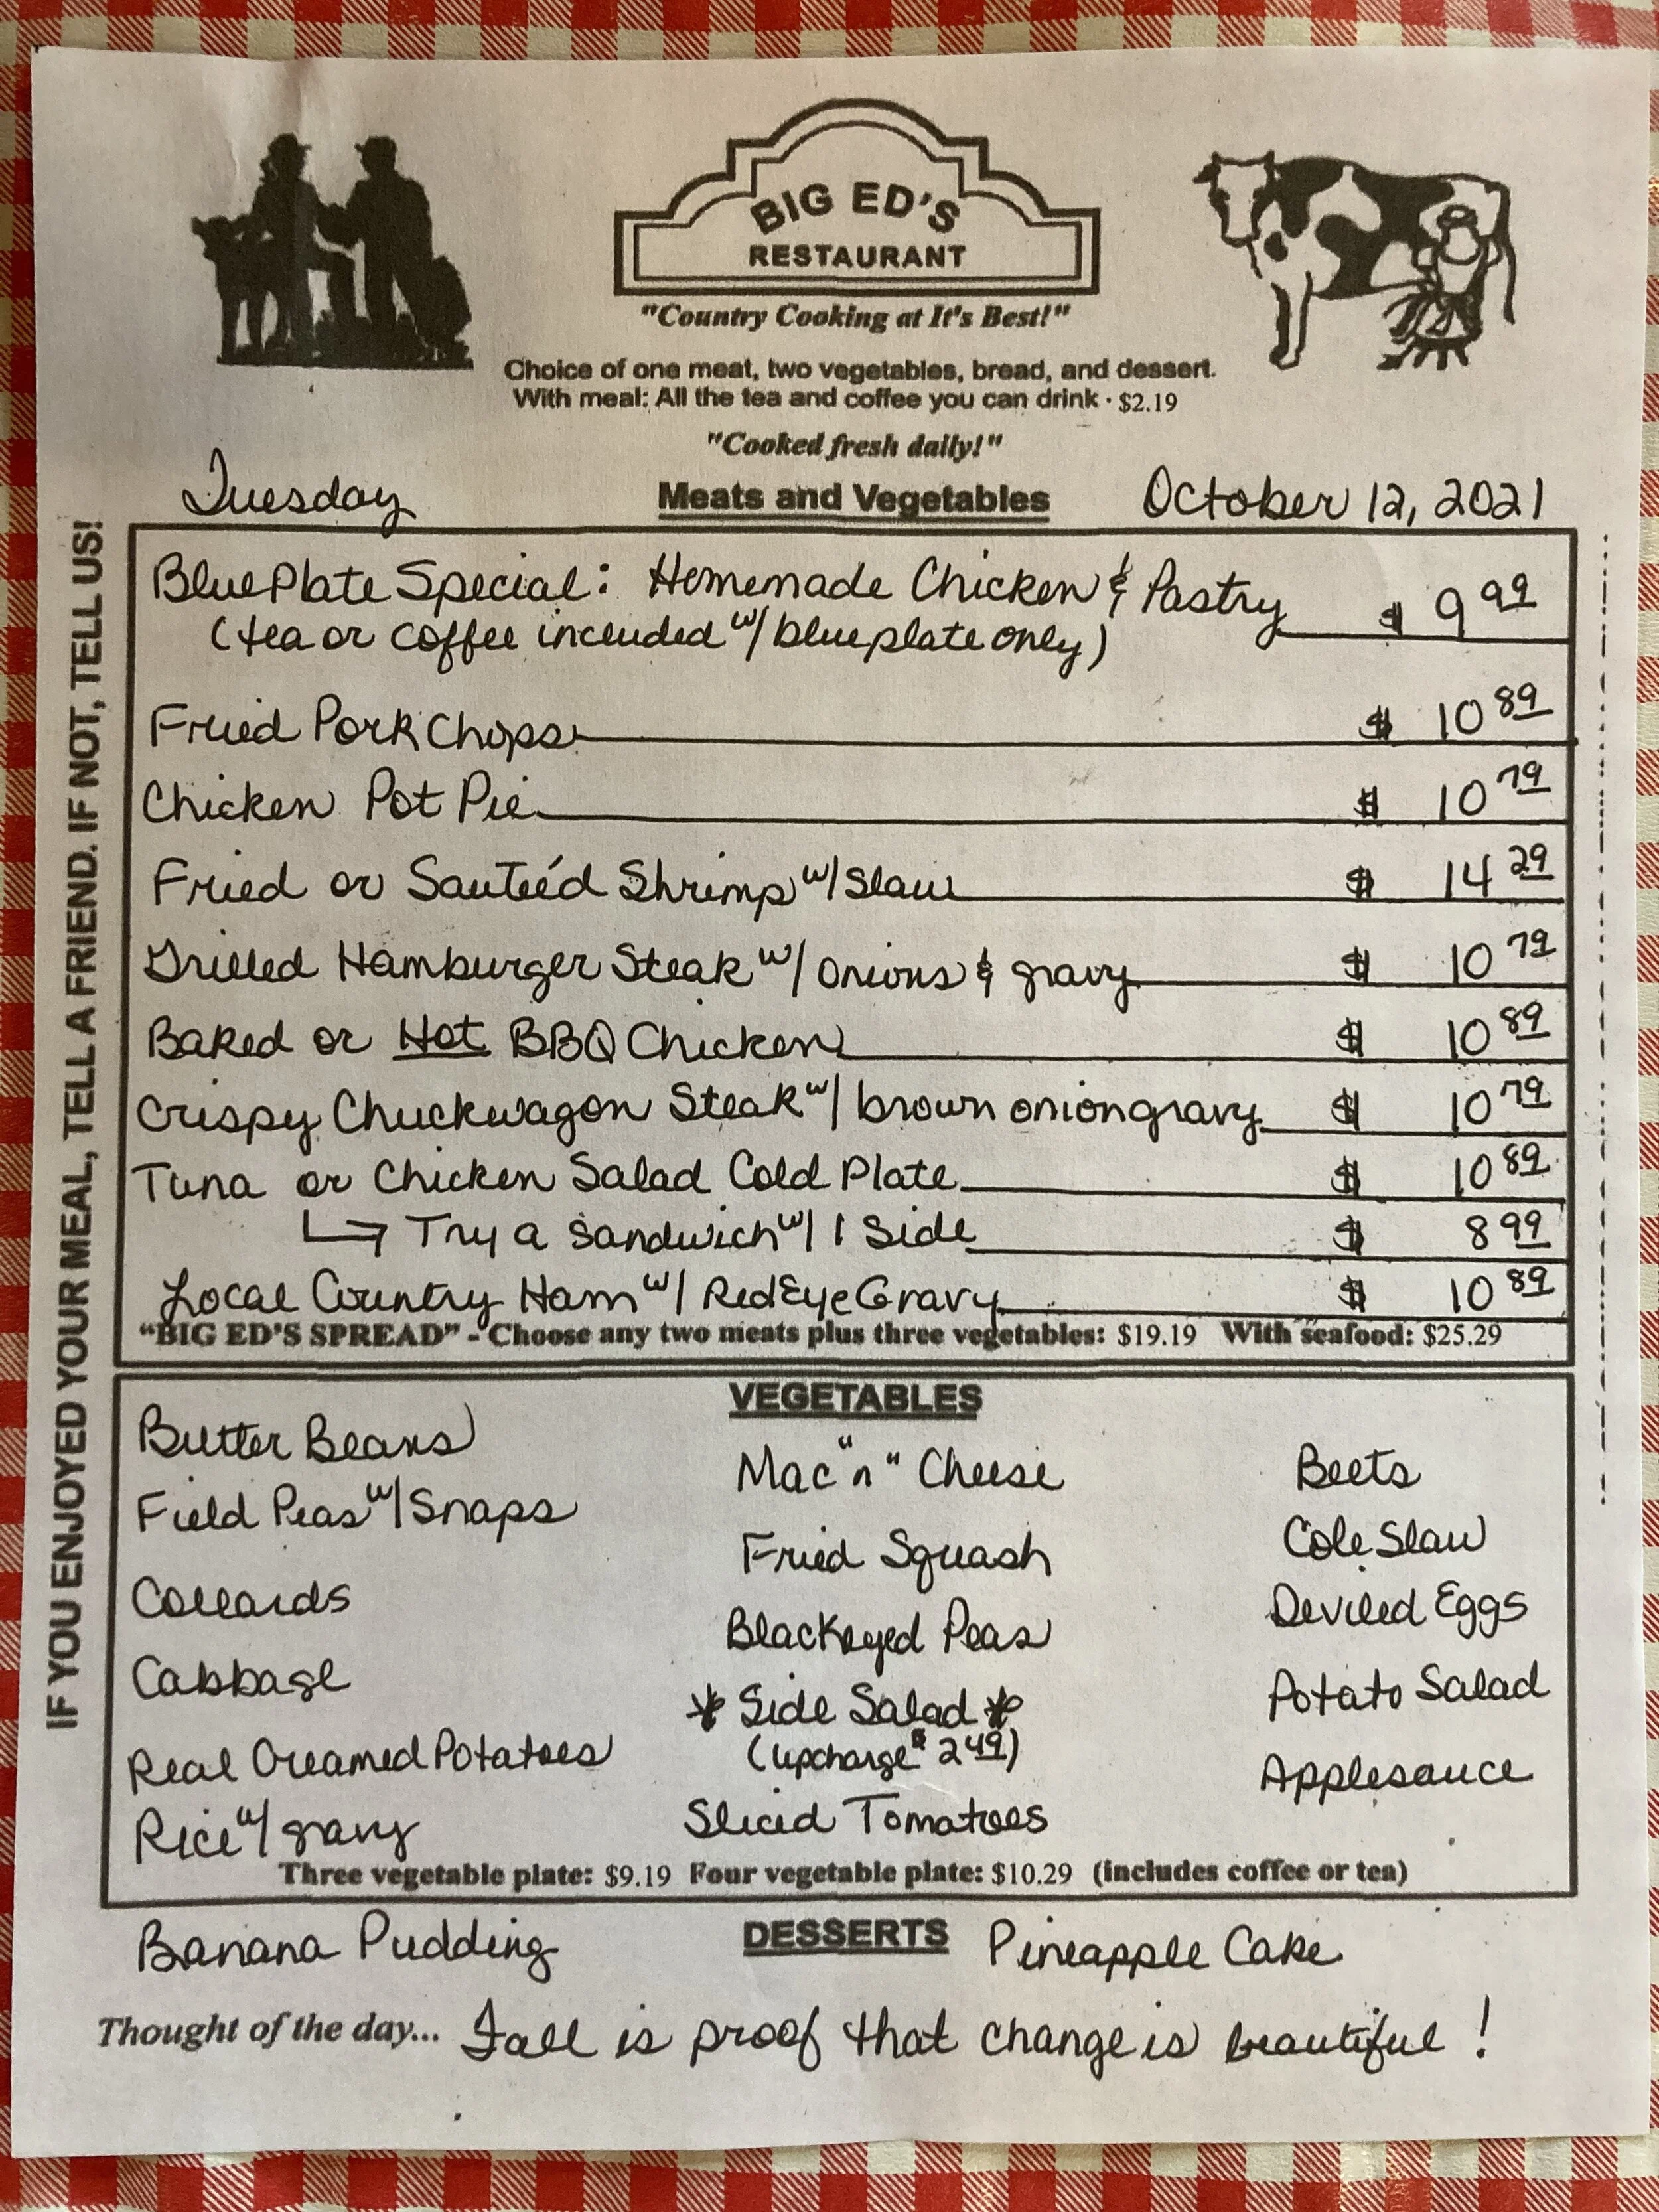 BIG ED'S
RESTAURANT
"Country Cooking at It's Best!"
Choice of one meat, two vegetables, bread, and dessert.
With meal: All the tea and coffee you can drink · $2.19
"Cooked fresh daily!"
Tuesday Meats and Vegetables October 12, 2021
IF YOU ENJOYED YOUR MEAL, TELL A FRIEND. IF NOT, TELL US!
Blue Plate Special: Homemade Chicken & Pastry $ 9 99
(tea or coffee included w/ blue plate only)
Fried Pork Chops $ 10 89
Chicken Pot Pie $ 10 79
Fried or Sauteé'd Shrimp w/ Slaw $ 14 29
Grilled Hamburger Steak w/ onions & gravy $ 10 79
Baked or Hot BBQ Chicken $ 10 89
Crispy Chuckwagon Steak w/ brown onion gravy $ 10 79
Tuna or Chicken Salad Cold Plate $ 10 89
Try a sandwich w/ 1 Side $ 8 99
Local Country Ham w/ Red Eye Gravy $ 10 89
"BIG ED'S SPREAD" - Choose any two meats plus three vegetables: $19.19 With seafood: $25.29
VEGETABLES
Butter Beans
Field Peas w/ Snaps
Collards
Cabbage
Real Creamed Potatoes
Rice w/ gravy
Mac "n" Cheese
Fried Squash
Blackeyed Peas
* Side Salad *
(upcharge $2 49)
Sliced Tomatoes
Beets
Cole Slaw
Deviled Eggs
Potato Salad
Applesauce
Three vegetable plate: $9.19 Four vegetable plate: $10.29 (includes coffee or tea)
Banana Pudding DESSERTS Pineapple Cake
Thought of the day... Fall is proof that change is beautiful!